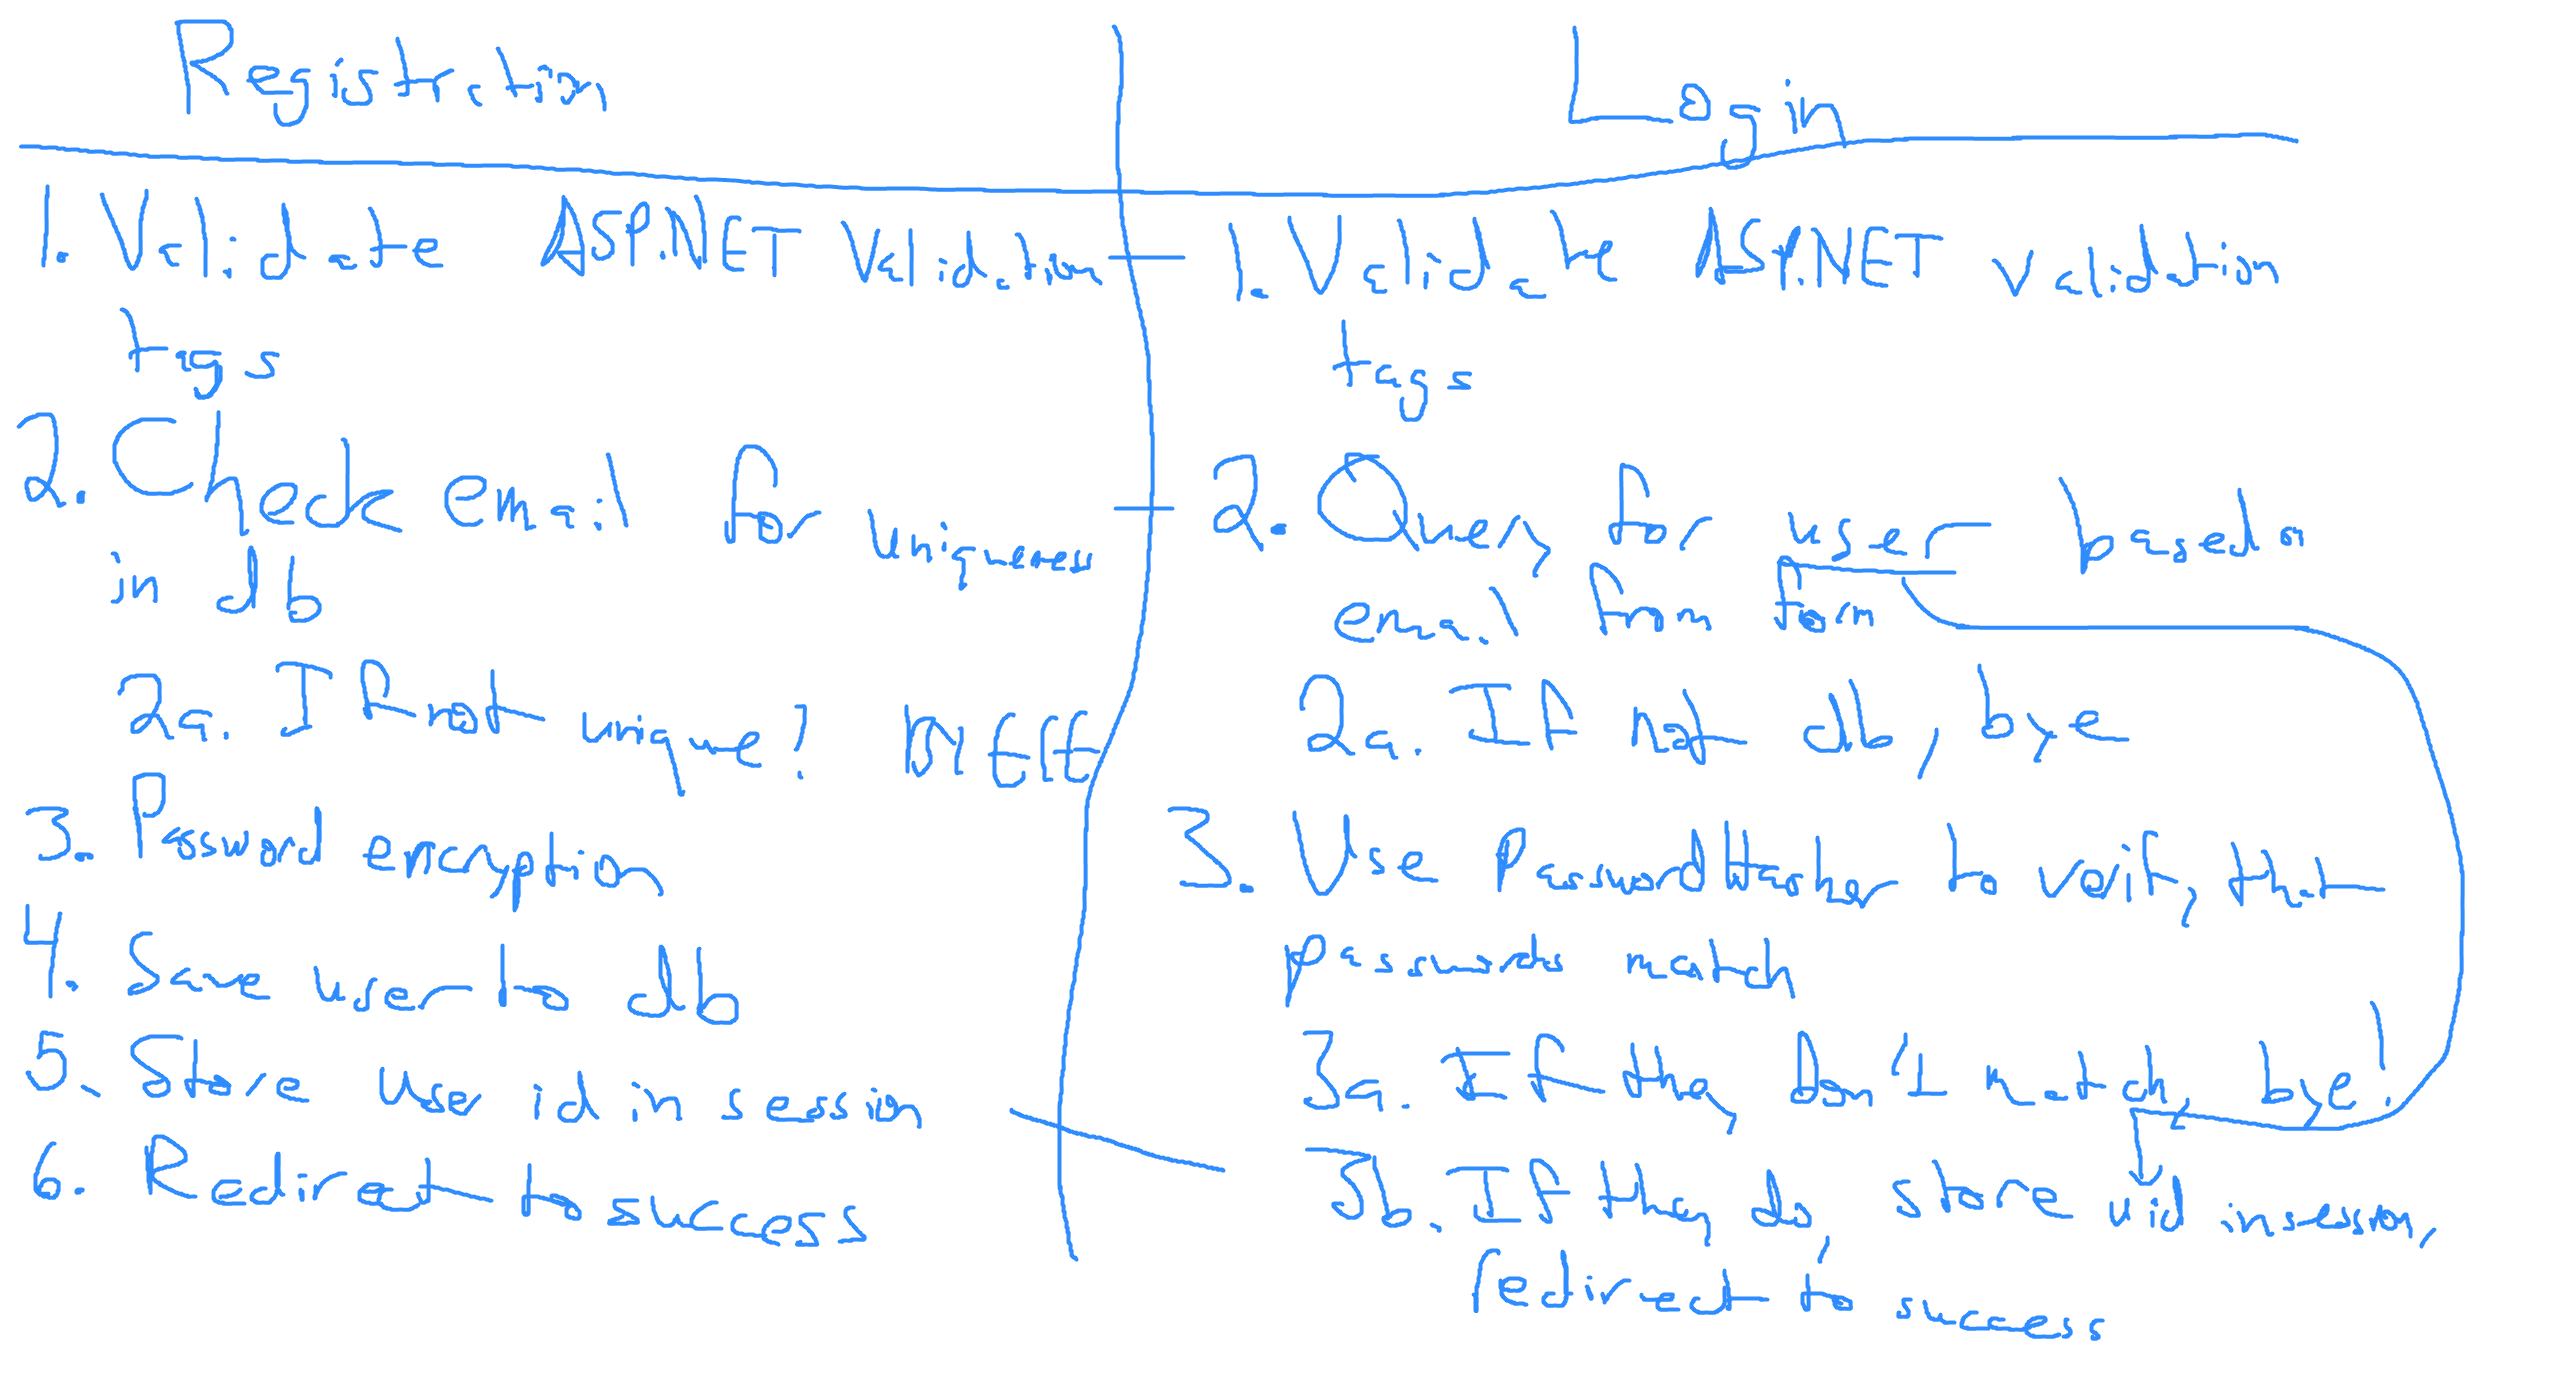 Registration
1. Validate ASP.NET Validation
tags
2. Check email for uniqueness
in db
2a. If not unique!
3. Password encryption
4. Save user to db
5. Store user id in session
6. Redirect to success
Login
1. Validate ASP.NET validation
tags
2. Query for user based on
email from form
2a. If not db, bye
3. Use PasswordHasher to verify that
passwords match
3a. If they Don't match, bye!
3b. If they do, store uid in session,
redirect to success